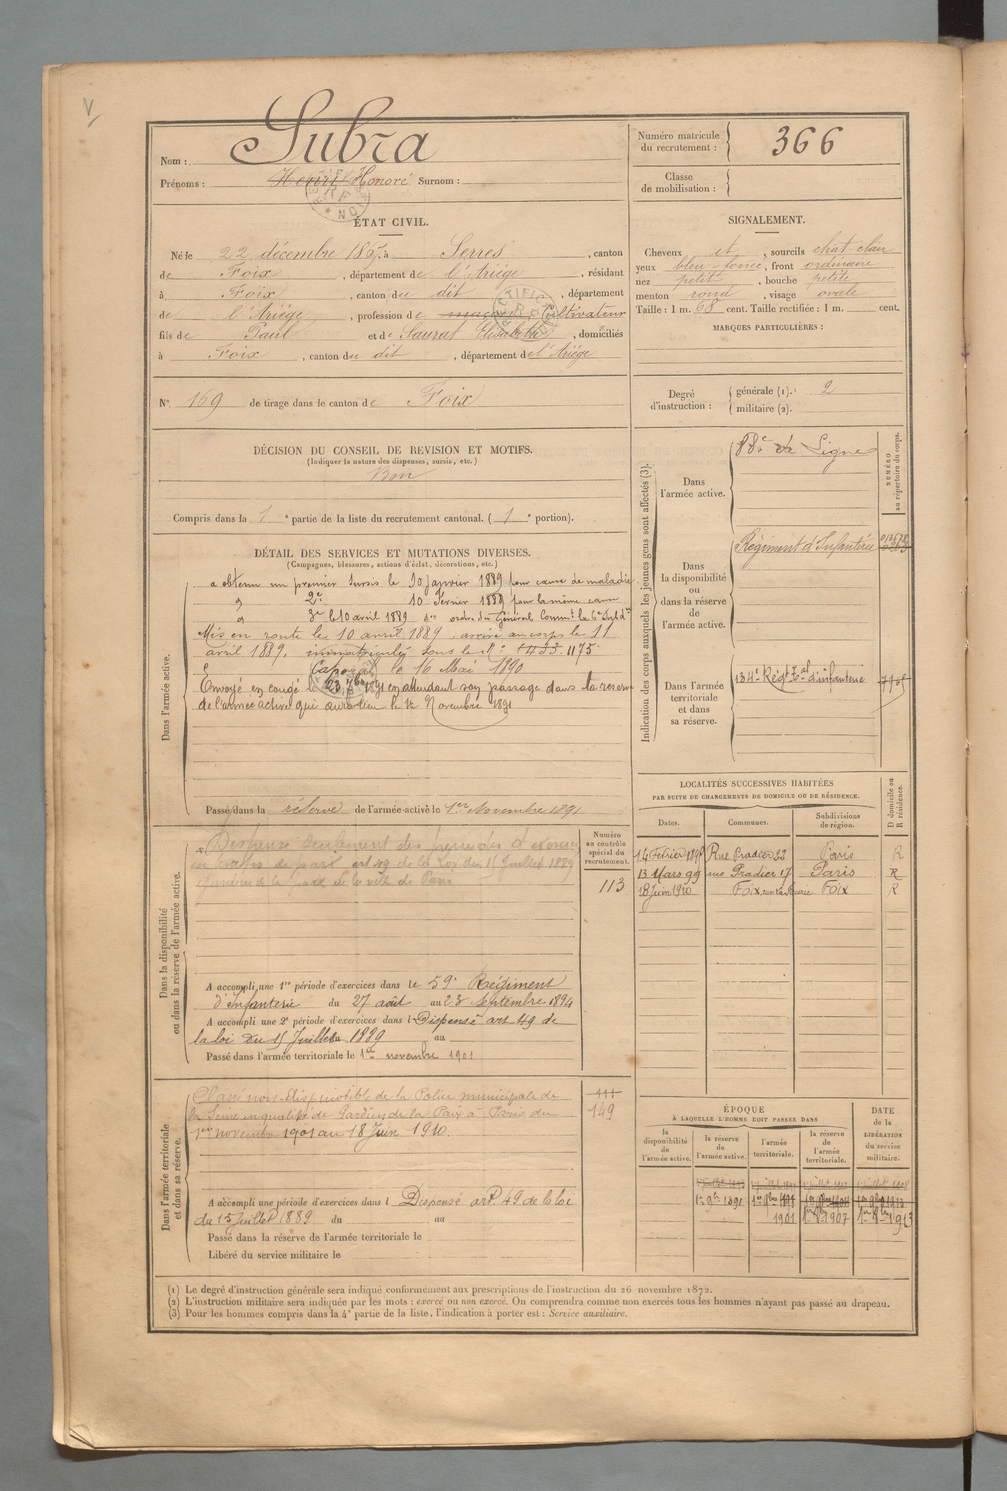 Nom : Subra
Prénoms : Henri Honoré Surnom :
Numéro matricule du recrutement : 366
Classe de mobilisation :
ÉTAT CIVIL.
Né le 22 décembre 1867, à Serres, canton
de Foix, département de l'Ariége, résidant
à Foix, canton du dit, département
de l'Ariége, profession de maçon Cultivateur
fils de Paul et de Saurat Elisabeth, domiciliés
à Foix, canton du dit, département de l'Ariége
N° 169 de tirage dans le canton de Foix
SIGNALEMENT.
Cheveux et, sourcils chat. clair
yeux bleu-foncé, front ordinaire
nez petit, bouche petite
menton rond, visage ovale
Taille : 1 m. 68 cent. Taille rectifiée : 1 m. cent.
MARQUES PARTICULIÈRES :
Degré d'instruction :
générale (1). 2
militaire (2).
DÉCISION DU CONSEIL DE REVISION ET MOTIFS.
(Indiquer la nature des dispenses, sursis, etc.)
Bon
Compris dans la 1e partie de la liste du recrutement cantonal. (1e portion).
DÉTAIL DES SERVICES ET MUTATIONS DIVERSES.
(Campagnes, blessures, actions d'éclat, décorations, etc.)
Dans l'armée active.
a obtenu un premier sursis le 10 janvier 1889 pour cause de maladie
" 2e 10 Février 1889 pour la même cause
" 3e le 10 avril 1889 ordre du Général Commt la 6e Subdon
Mis en route le 10 avril 1889 arrivé au corps le 11
avril 1889, immatriculé sous le N° 1433. 1175
Caporal le 16 Mai 1890
Envoyé en congé le 23 7bre 1891 en attendant son passage dans la reserve
de l'armée active qui aura lieu le 1er Novembre 1891
Passé dans la réserve de l'armée active le 1er Novembre 1891
Indication des corps auxquels les jeunes gens sont affectés (3).
NUMÉRO au répertoire du corps.
Dans l'armée active.
88e de Ligne
Dans la disponibilité ou dans la réserve de l'armée active.
Régiment d'Infanterie
Dans l'armée territoriale et dans sa réserve.
134e Régt Tal d'infanterie
LOCALITÉS SUCCESSIVES HABITÉES
PAR SUITE DE CHANGEMENTS DE DOMICILE OU DE RÉSIDENCE.
D domicile ou R résidence.
Dates. Communes. Subdivisions de région.
14 Février 189 Rue Pradier 22 Paris R
13 Mars 99 rue Pradier 17 Paris R
18 Juin 1910 Foix, Foix R
Dans la disponibilité ou dans la réserve de l'armée active.
Numéro au contrôle spécial du recrutement.
113
Dispensé seulement des périodes d'exercices
en temps de paix art 49 de la Loi du 15 Juillet 1889
Gardien de la paix de la ville de Paris
A accompli une 1re période d'exercices dans le 59e Régiment
d'Infanterie du 27 août au 23 Septembre 1894
A accompli une 2e période d'exercices dans l Dispensé art 49 de
la loi du 15 Juillet du 1889 au
Passé dans l'armée territoriale le 1er novembre 1901
Dans l'armée territoriale et dans sa réserve.
111
149
Classé non-disponible de la Police municipale de
la Seine en qualité de Gardien de la Paix à Paris du
1er novembre 1901 au 18 Juin 1910.
A accompli une période d'exercices dans l Dispensé art. 49 de la loi
du 15 Juillet 1889 du au
Passé dans la réserve de l'armée territoriale le
Libéré du service militaire le
ÉPOQUE
À LAQUELLE L'HOMME DOIT PASSER DANS
DATE de la LIBÉRATION du service militaire.
la disponibilité de l'armée active. la réserve de l'armée active. l'armée territoriale. la réserve de l'armée territoriale.
1er 9bre 1891
1901 1er 9bre 1907 1er 9bre 1913
(1) Le degré d'instruction générale sera indiqué conformément aux prescriptions de l'instruction du 26 novembre 1872.
(2) L'instruction militaire sera indiquée par les mots : exercé ou non exercé. On comprendra comme non exercés tous les hommes n'ayant pas passé au drapeau.
(3) Pour les hommes compris dans la 4e partie de la liste, l'indication à porter est : Service auxiliaire.